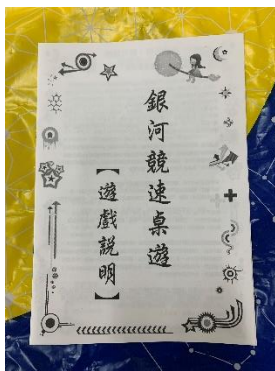 銀河競速桌遊
【遊戲説明】